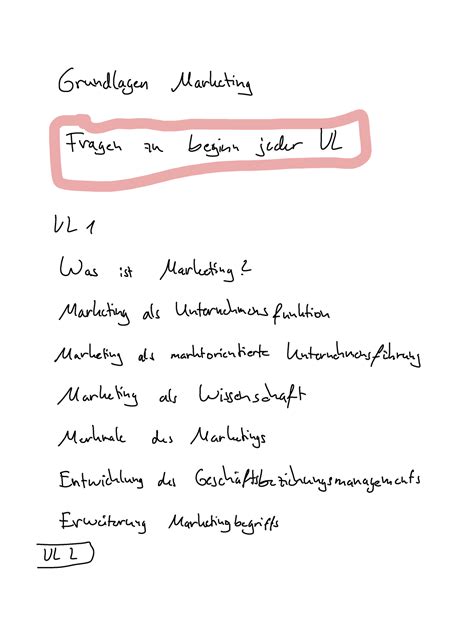 Grundlagen Marketing
Fragen zu beginn jeder VL
VL 1
Was ist Marketing?
Marketing als Unternehmensfunktion
Marketing als marktorientierte Unternehmensführung
Marketing als Wissenschaft
Merkmale des Marketings
Entwicklung des Geschäftsbeziehungsmanagements
Erweiterung Marketingbegriffs
VL 2